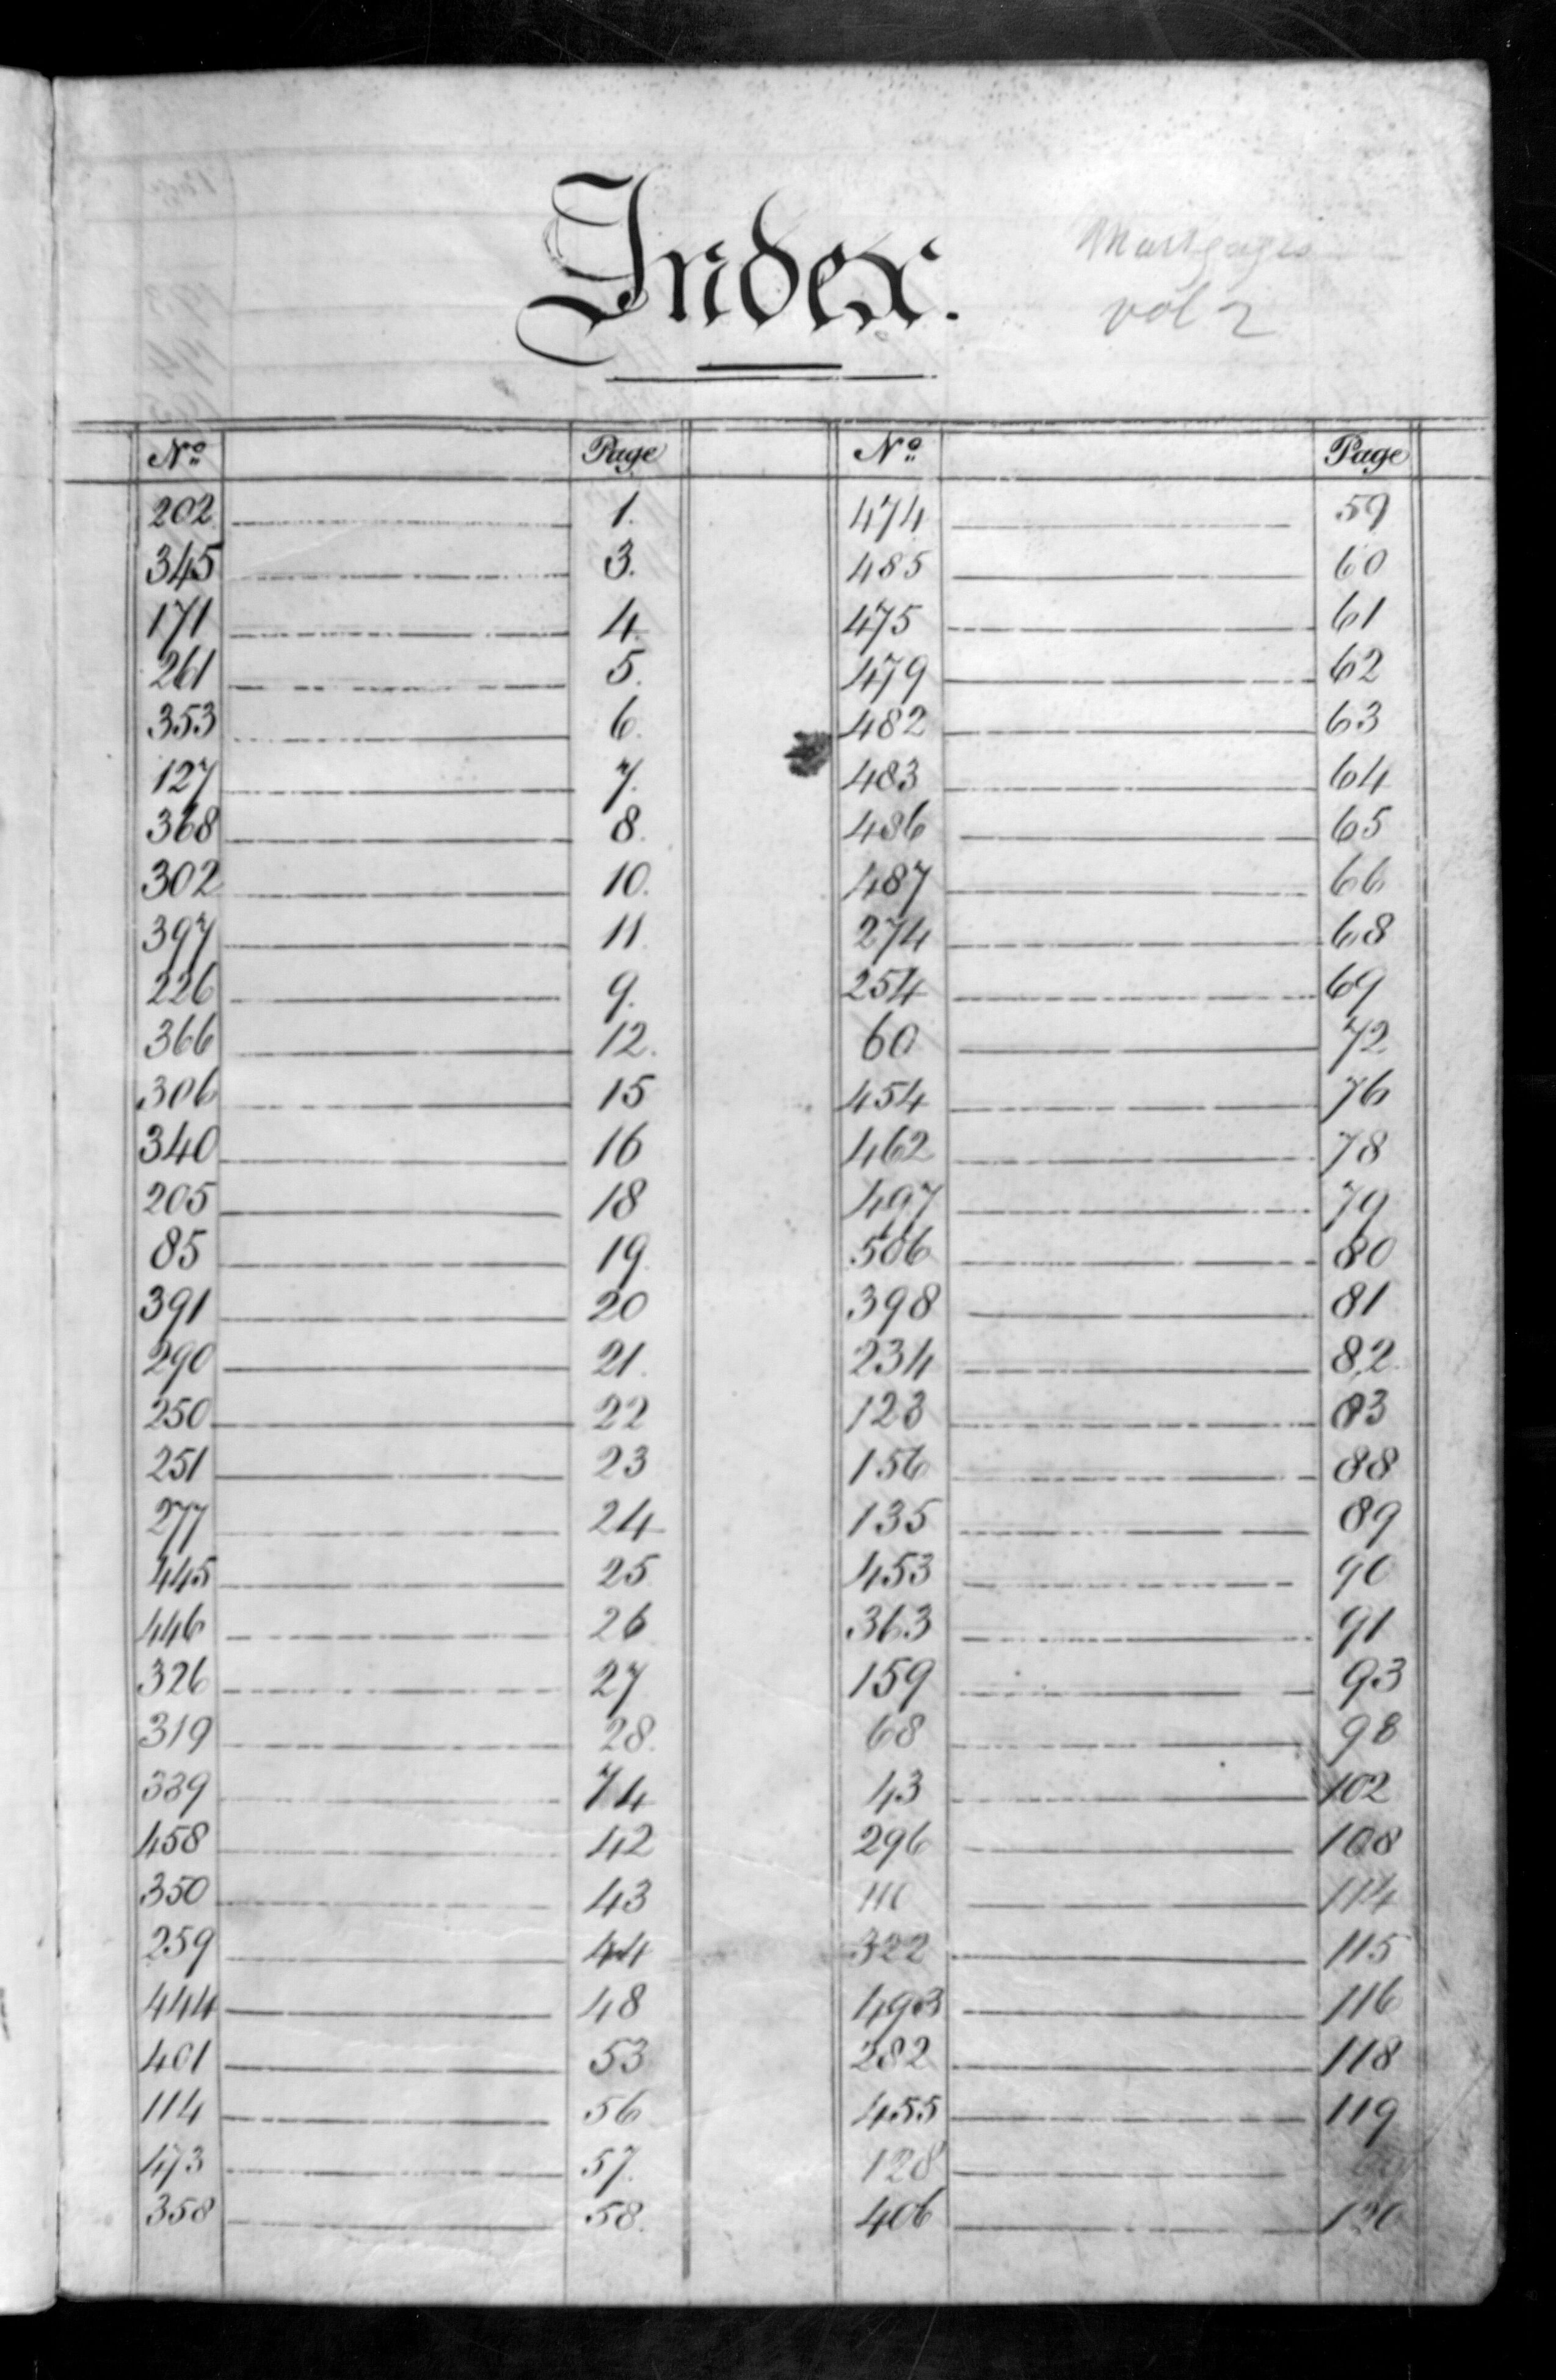 Index.
Mortgages
vol 2
No Page No Page
202 1. 474 59
345 3. 485 60
171 4. 475 61
261 5. 479 62
353 6. 482 63
127 7. 483 64
368 8. 486 65
302 10. 487 66
397 11. 274 68
226 9. 254 69
366 12. 60 72
306 15 454 76
340 16 462 78
205 18 497 79
85 19. 506 80
391 20 398 81
290 21. 234 82
250 22 123 83
251 23 156 88
277 24 135 89
445 25 453 90
446 26 363 91
326 27 159 93
319 28. 68 98
339 74 43 102
458 42 296 108
350 43 110 114
259 44 322 115
444 48 493 116
401 53 282 118
114 56 455 119
473 57. 128
358 58. 406 120